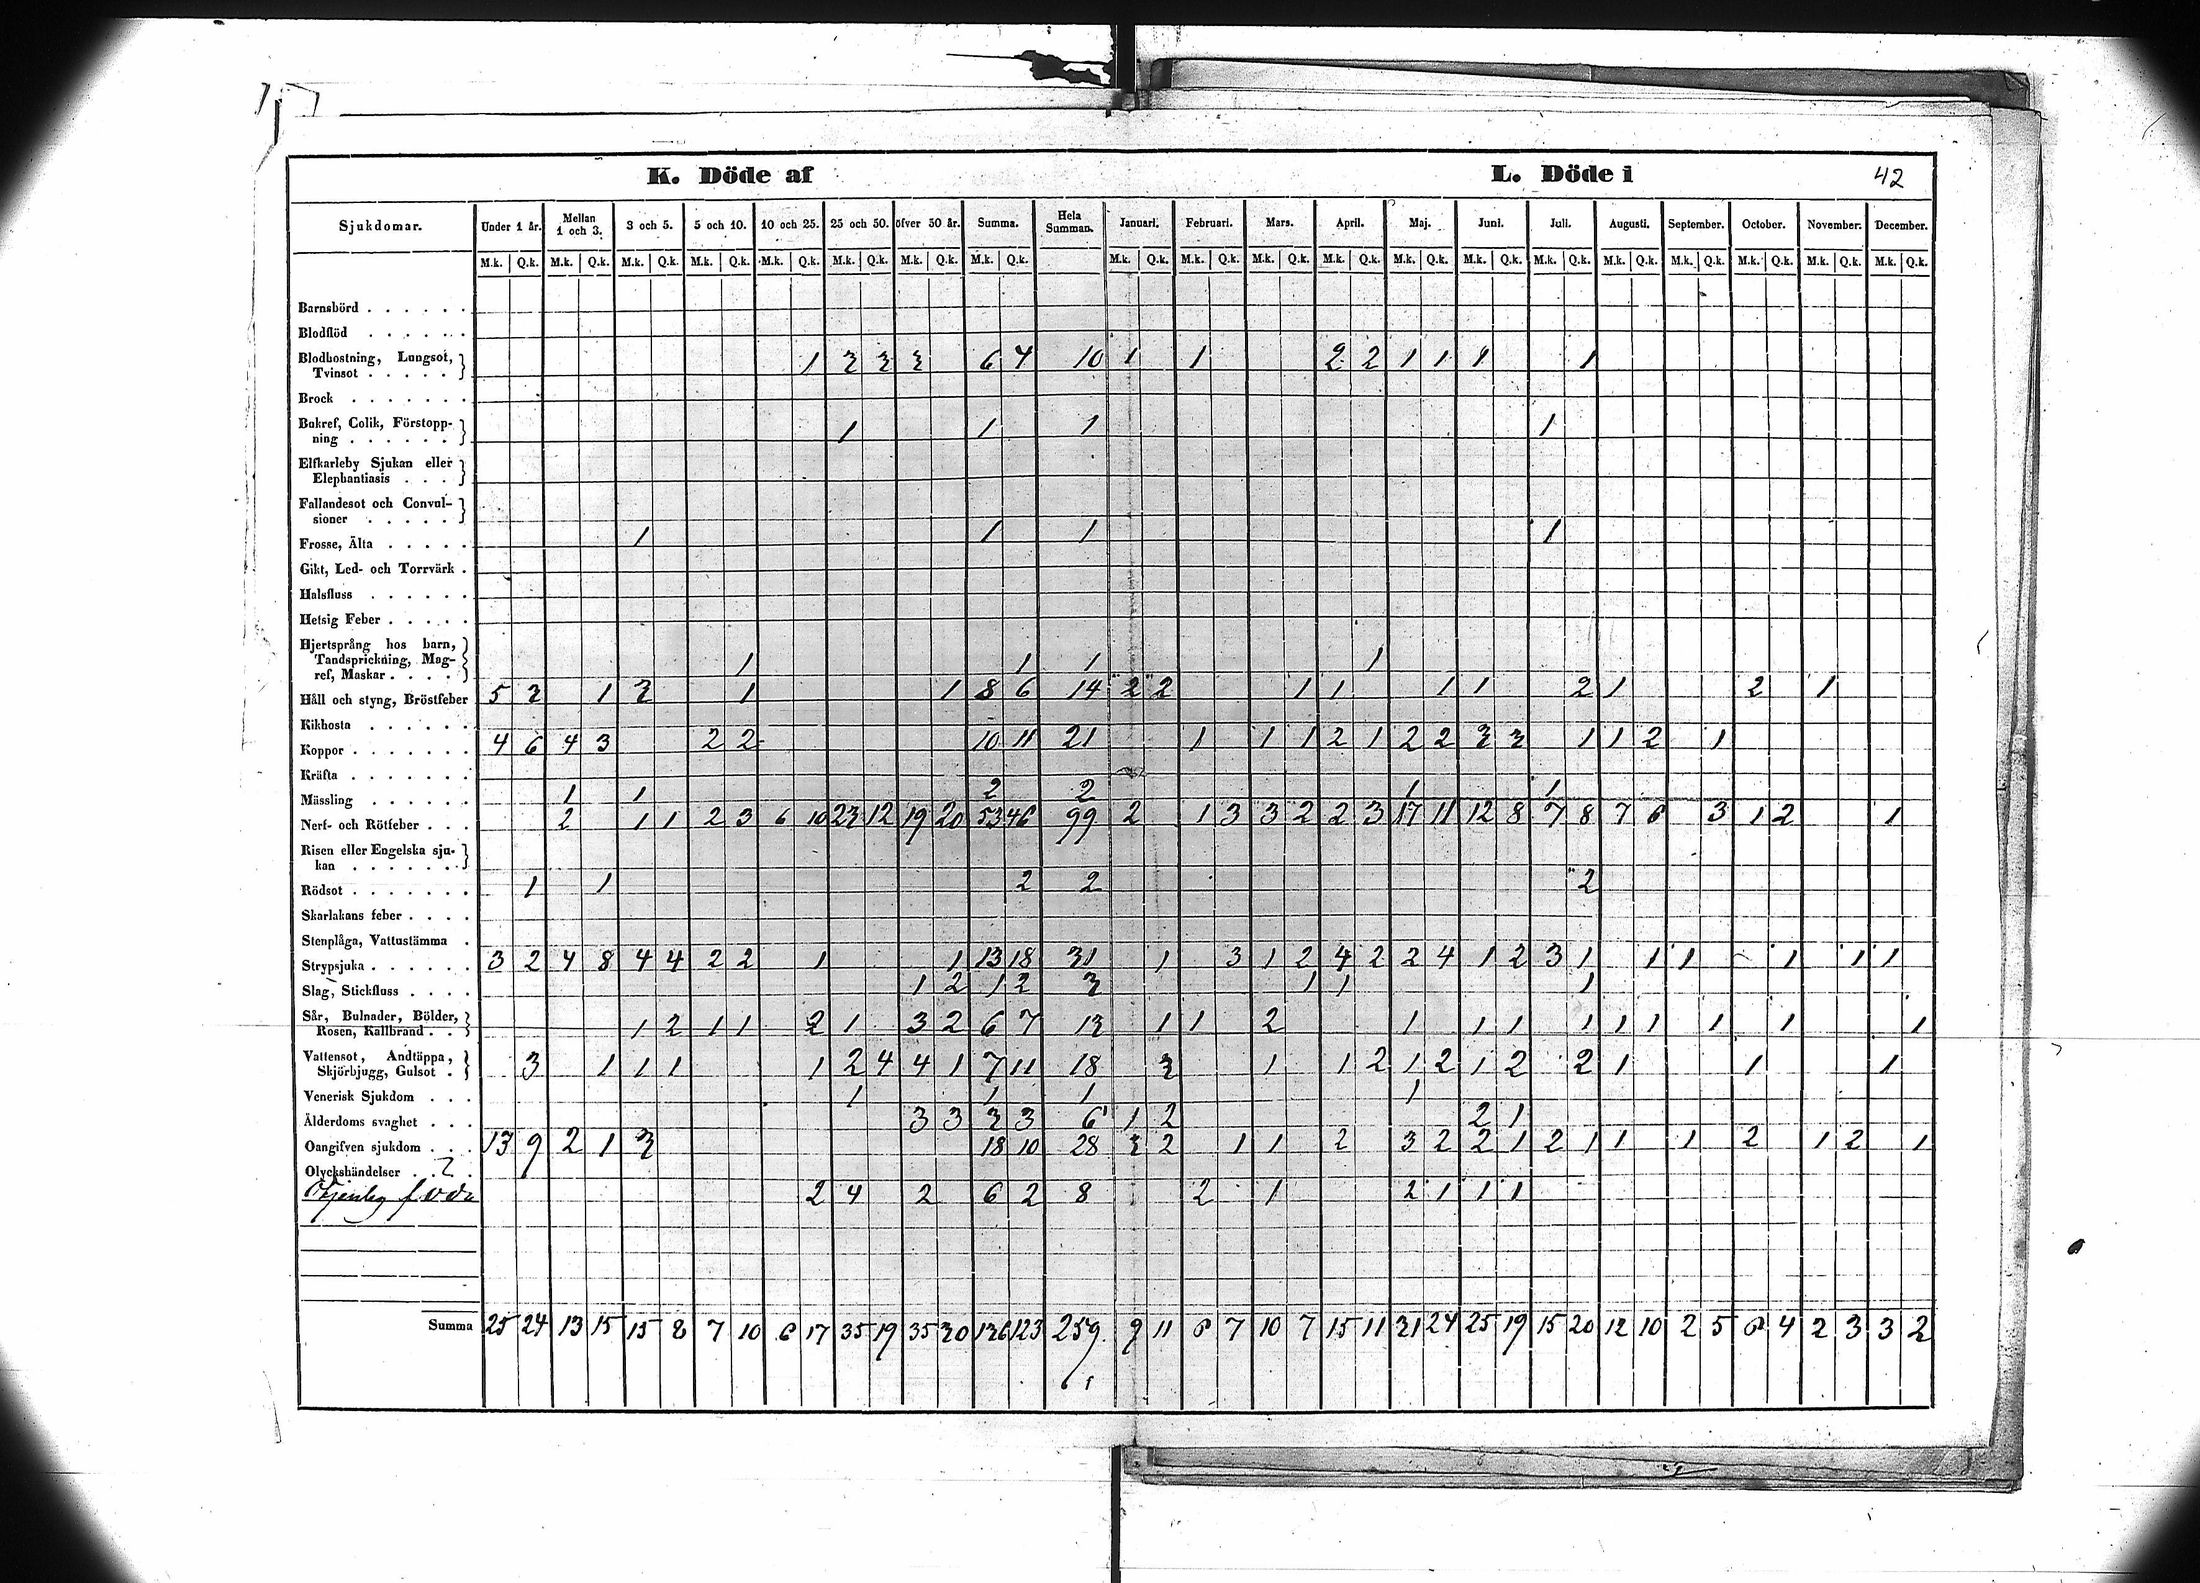 K. Döde af L. Döde i 42
Sjukdomar. Under 1 år. Mellan 1 och 3. 3 och 5. 5 och 10. 10 och 25. 25 och 50. öfver 50 år. Summa. Hela Summan. Januari. Februari. Mars. April. Maj. Juni. Juli. Augusti. September. October. November. December.
M.k. Q.k. M.k. Q.k. M.k. Q.k. M.k. Q.k. M.k. Q.k. M.k. Q.k. M.k. Q.k. M.k. Q.k. M.k. Q.k. M.k. Q.k. M.k. Q.k. M.k. Q.k. M.k. Q.k. M.k. Q.k. M.k. Q.k. M.k. Q.k. M.k. Q.k. M.k. Q.k. M.k. Q.k. M.k. Q.k.
Barnsbörd
Blodflöd
Blodhostning, Lungsot,
Tvinsot 1 3 3 3 6 4 10 1 1 2 2 1 1 1 1
Brock
Bukref, Colik, Förstopp-
ning 1 1 1 1
Elfkarleby Sjukan eller
Elephantiasis
Fallandesot och Convul-
sioner
Frosse, Älta 1 1 1 1
Gikt, Led- och Torrvärk
Halsfluss
Hetsig Feber
Hjertsprång hos barn,
Tandsprickning, Mag-
ref, Maskar 1 1 1 1
Håll och styng, Bröstfeber 5 3 1 3 1 1 8 6 14 2 2 1 1 1 1 2 1 2 1
Kikhosta
Koppor 4 6 4 3 2 2 10 11 21 1 1 1 2 1 2 2 3 3 1 1 2 1
Kräfta
Mässling 1 1 2 2 1 1
Nerf- och Rötfeber 2 1 1 2 3 6 10 23 12 19 20 53 46 99 2 1 3 3 2 2 3 17 11 12 8 7 8 7 6 3 1 2 1
Risen eller Engelska sju-
kan
Rödsot 1 1 2 2 2
Skarlakans feber
Stenplåga, Vattustämma
Strypsjuka 3 2 4 8 4 4 2 2 1 1 13 18 31 1 3 1 2 4 2 2 4 1 2 3 1 1 1 1 1 1
Slag, Stickfluss 1 2 1 2 3 1 1 1
Sår, Bulnader, Bölder,
Rosen, Kallbrand 1 2 1 1 2 1 3 2 6 7 13 1 1 2 1 1 1 1 1 1 1 1 1
Vattensot, Andtäppa,
Skjörbjugg, Gulsot 3 1 1 1 1 2 4 4 1 7 11 18 3 1 1 2 1 2 1 2 2 1 1 1
Venerisk Sjukdom 1 1 1 1
Ålderdoms svaghet 3 3 3 3 6 1 2 2 1
Oangifven sjukdom 13 9 2 1 3 18 10 28 3 2 1 1 2 3 2 2 1 2 1 1 1 2 1 2 1
Olyckshändelser 2 4 2 6 2 8 2 1 2 1 1 1
Summa 25 24 13 15 15 8 7 10 6 17 35 19 35 30 136 123 259 9 11 6 7 10 7 15 11 31 24 25 19 15 20 12 10 2 5 6 4 2 3 3 2